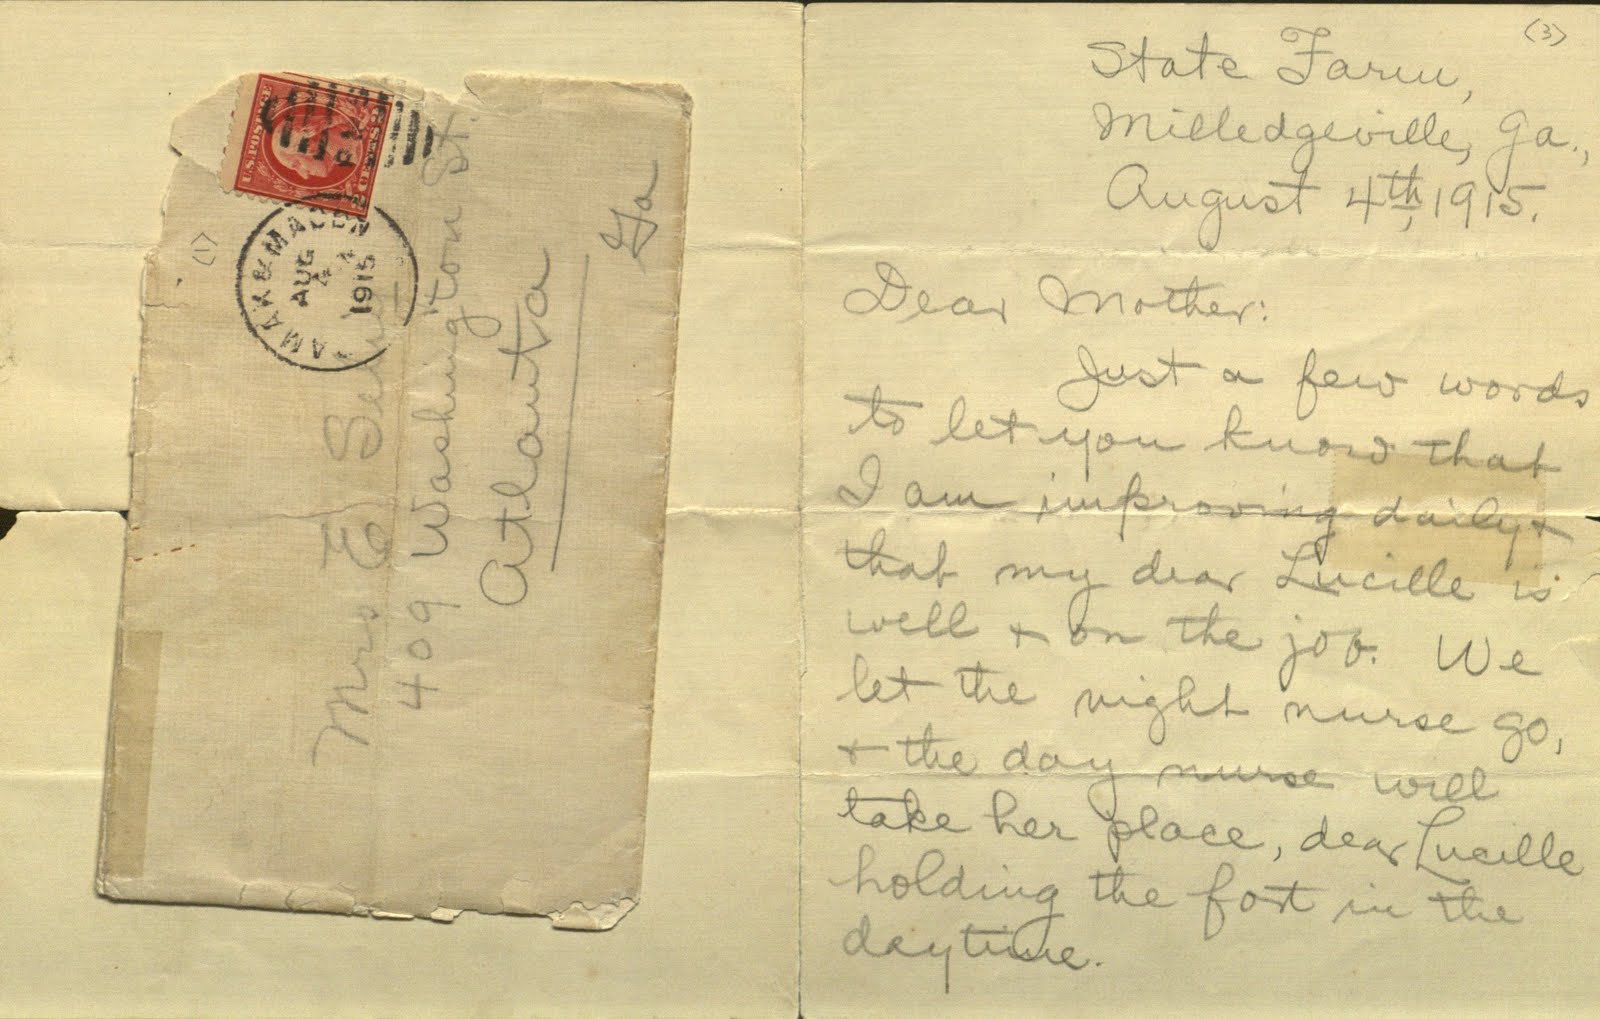 (3)
State Farm,
Milledgeville, Ga.,
August 4th, 1915.
Dear Mother:
Just a few words
to let you know that
I am improving daily +
that my dear Lucille is
well + on the job. We
let the night nurse go,
+ the day nurse will
take her place, dear Lucille
holding the fort in the
daytime.
(1)
U.S. POSTAGE
MAK & MACON
AUG
4
1915
Mrs E
409 Washington St.
Atlanta
Ga